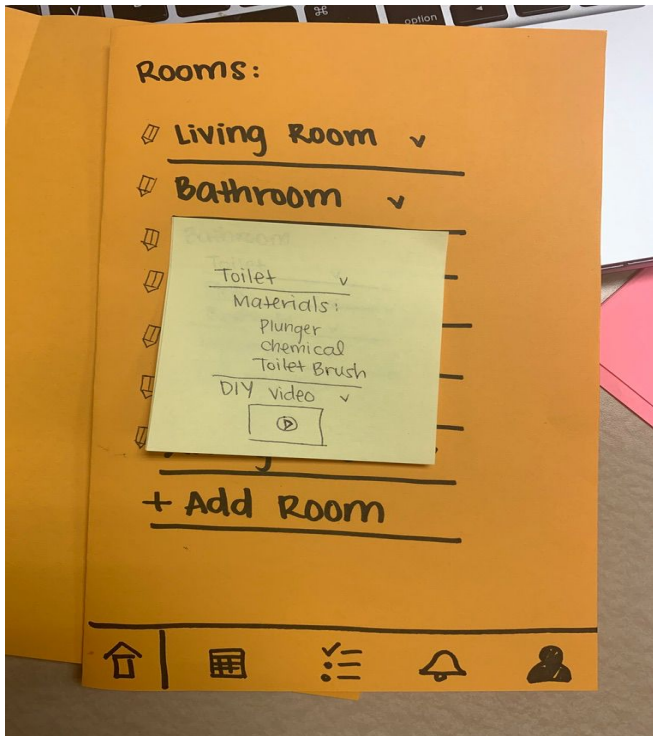 option
Rooms:
Living Room
Bathroom
Toilet
Materials:
Plunger
chemical
Toilet Brush
DIY Video
+ Add Room